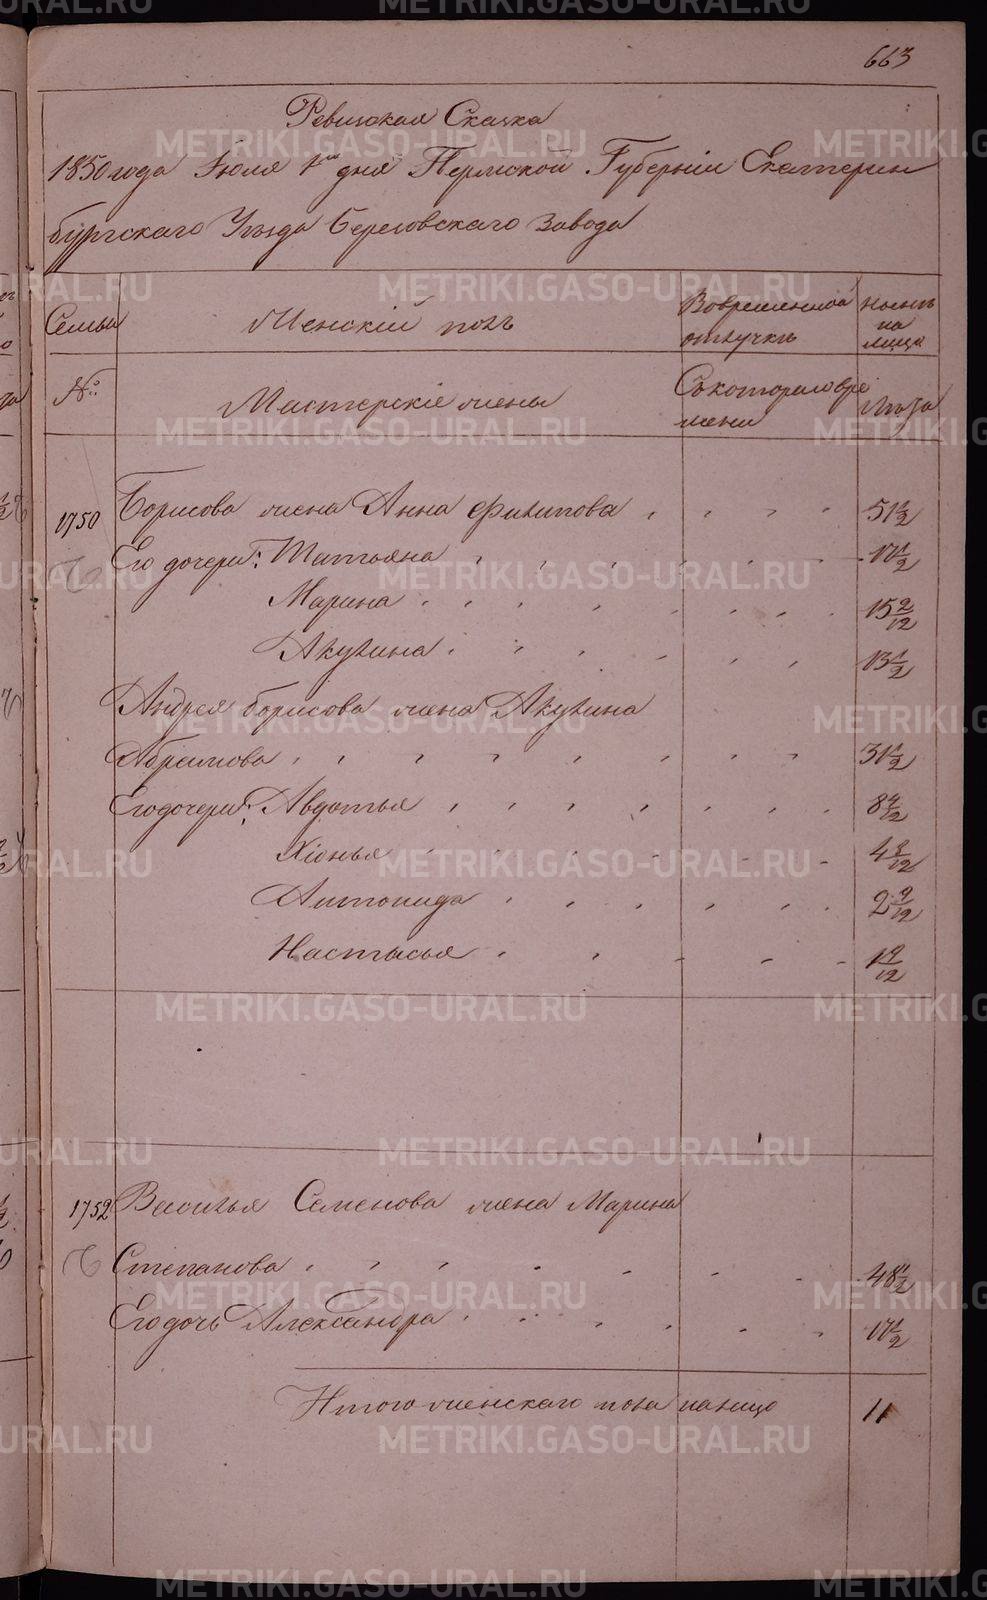 663
Ревизская Сказка
1850 года Іюля 1го дня Пермской Губерніи Екатерин
бургскаго Уѣзда Березовскаго Завода
Семьи
Женскій полъ
Во временной отлучкѣ
Нынѣ на лицо
№:
Мастерскіе жены
Съ котораго вре мени
Лѣта
1750 Борисова жена Анна Филипова 51 1/2
Его дочери: Татьяна 17 1/2
Марина 15 2/12
Акулина 13 1/2
Андрея Борисова жена Акулина
Абрамова 31 1/2
Его дочери: Авдотья
Хіонья
Антонида
Настасья
1752 Василья Семенова жена Марина
Степанова 48 1/2
Его дочь Александра 17 1/2
Итого женскаго пола на лицо 11
METRIKI.GASO-URAL.RU